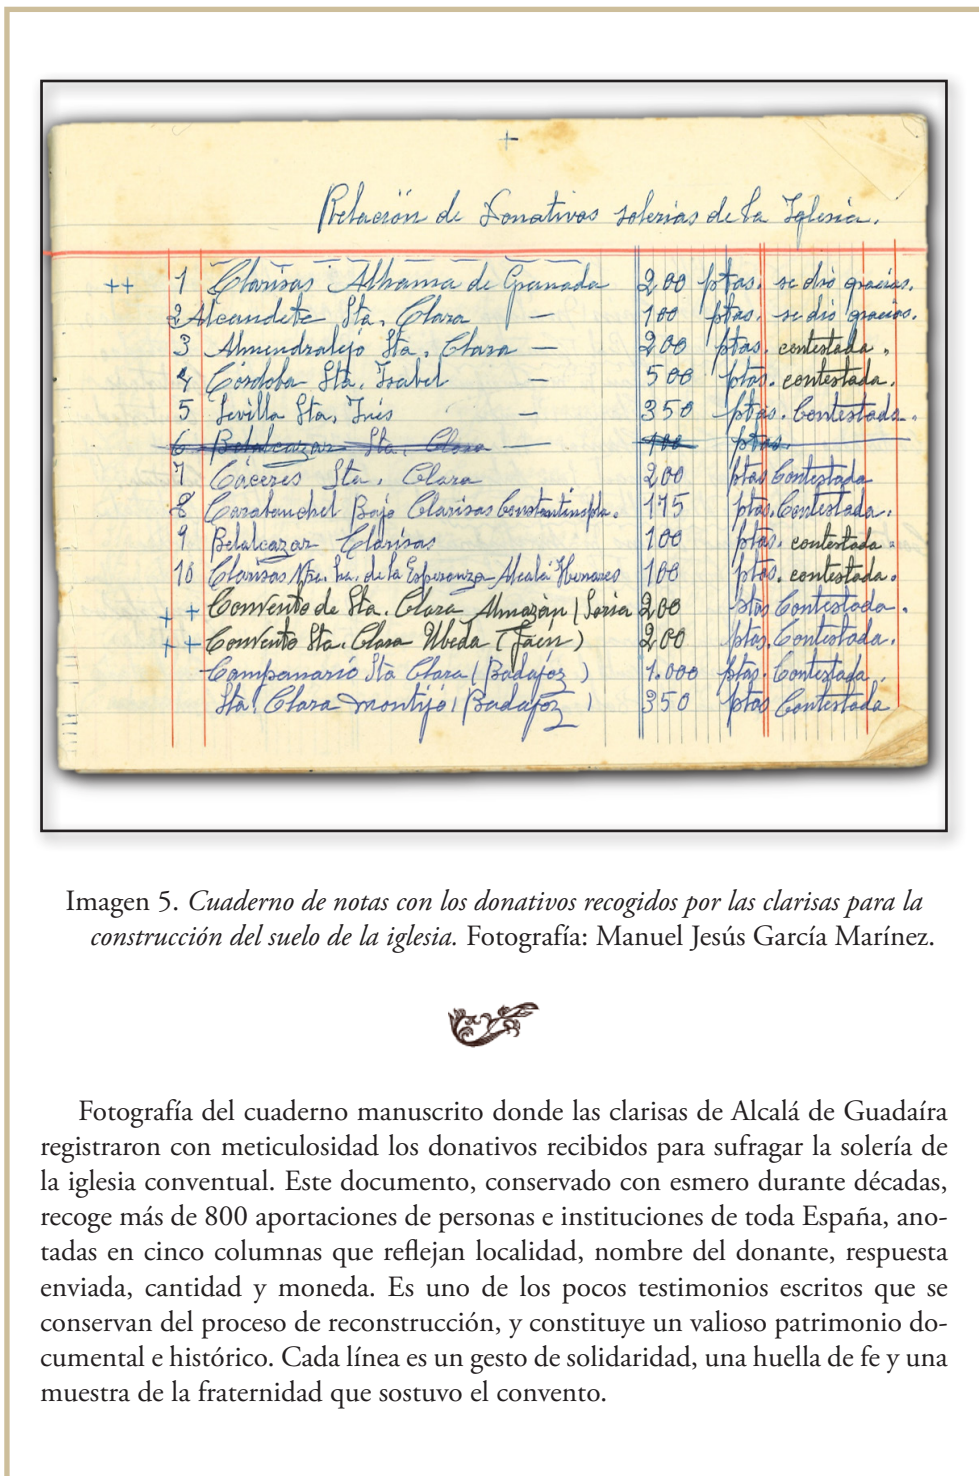 +
Relación de Donativos solerias de la Iglesia.
++ 1 Clarisas Alhama de Granada 200 ptas. se dió gracias.
2 Alcaudete Sta. Clara — 100 ptas. se dió gracias.
3 Almendralejo Sta. Clara — 200 ptas. contestada.
4 Córdoba Sta. Isabel — 500 ptas. contestada.
5 Sevilla Sta. Inés — 350 ptas. Contestada.
6 Belalcazar Sta. Clara — 100 ptas.
7 Cáceres Sta. Clara 200 ptas Contestada
8 Carabanchel Bajo Clarisas Constantinopla. 175 ptas. Contestada.
9 Belalcazar Clarisas 100 ptas. contestada.
10 Clarisas Ntra. Sra. de la Esperanza Alcalá Henares 100 ptas. contestada.
++ Convento de Sta. Clara Almazán (Soria 200 ptas Contestada.
++ Convento Sta. Clara Ubeda (Jaen) 200 ptas. Contestada.
Campanario Sta Clara (Badajoz) 1.000 ptas. Contestada.
Sta. Clara montijo (Badajoz) 350 ptas Contestada
Imagen 5. Cuaderno de notas con los donativos recogidos por las clarisas para la
construcción del suelo de la iglesia. Fotografía: Manuel Jesús García Marínez.
Fotografía del cuaderno manuscrito donde las clarisas de Alcalá de Guadaíra
registraron con meticulosidad los donativos recibidos para sufragar la solería de
la iglesia conventual. Este documento, conservado con esmero durante décadas,
recoge más de 800 aportaciones de personas e instituciones de toda España, ano-
tadas en cinco columnas que reflejan localidad, nombre del donante, respuesta
enviada, cantidad y moneda. Es uno de los pocos testimonios escritos que se
conservan del proceso de reconstrucción, y constituye un valioso patrimonio do-
cumental e histórico. Cada línea es un gesto de solidaridad, una huella de fe y una
muestra de la fraternidad que sostuvo el convento.